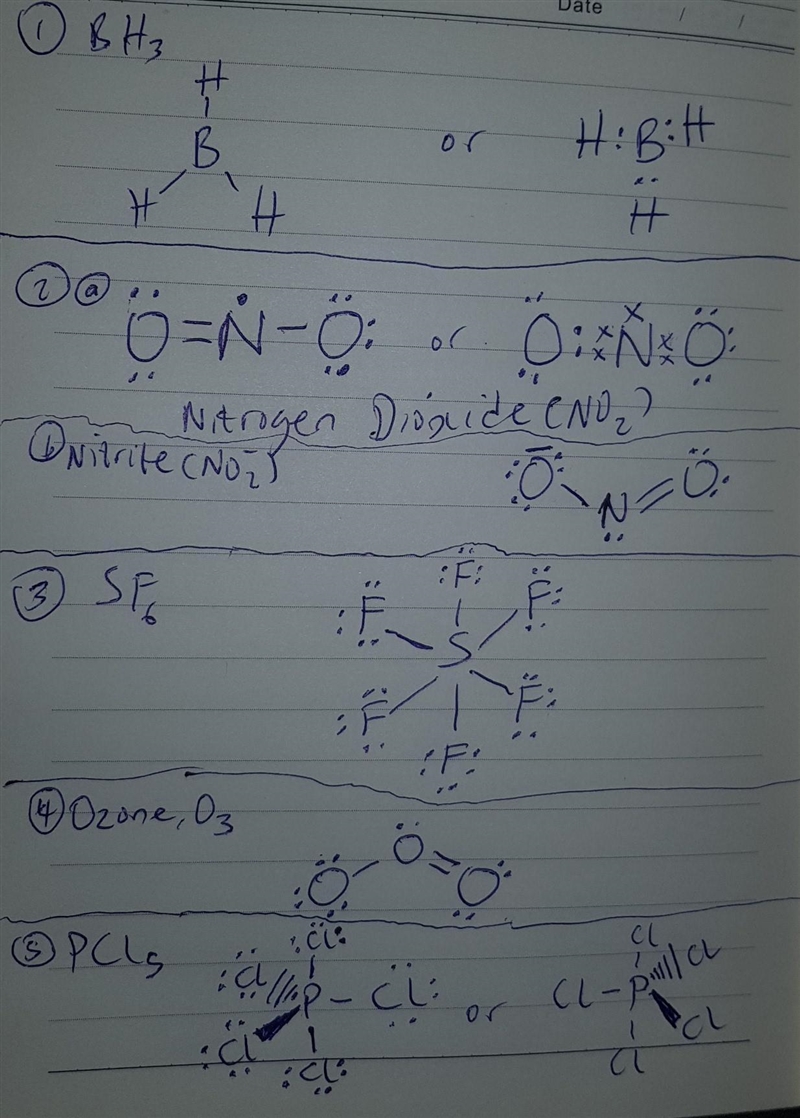 Date / /
① BH₃
H
B or H:B:H
H H H
② ⓐ O=N–O: or O::N:O:
Nitrogen Dioxide (NO₂)
ⓑ Nitrite (NO₂⁻) :O N O:
③ SF₆ :F:
:F F:
S
:F F:
:F:
④ Ozone, O₃ O
:O O:
⑤ PCl₅ :Cl: Cl
:Cl P – Cl: or Cl–P Cl
:Cl Cl
:Cl: Cl